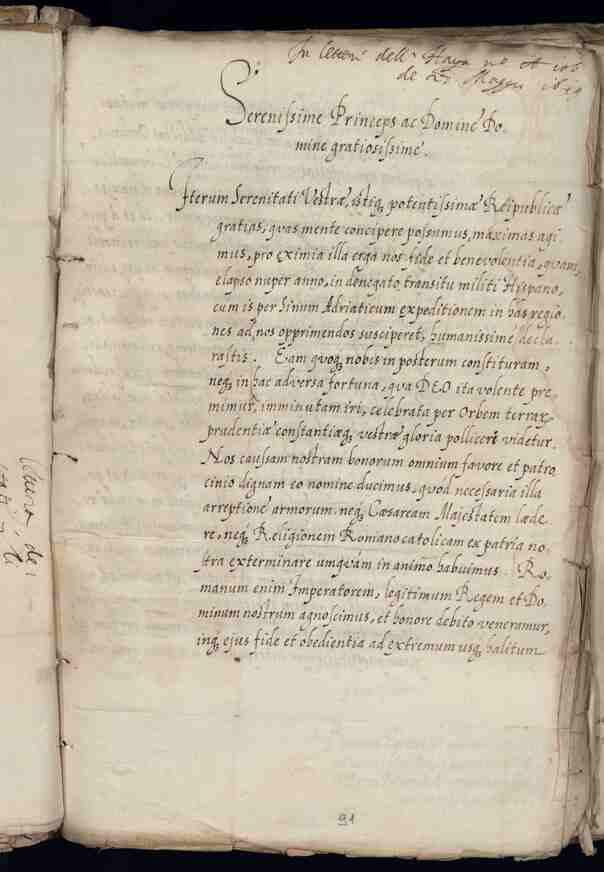 In lettere dell' Haya nº
de 27 Maggio 1621
Serenissime Princeps ac Domine Do-
mine gratiosissime.
Iterum Serenitati Vestræ, istiq; potentissimæ Reipublicæ
gratias, quas mente concipere possumus, maximas agi
mus, pro eximia illa erga nos fide et benevolentia, quam,
elapso nuper anno, in denegato transitu militi Hispano,
cum is per Sinum Adriaticum expeditionem in has regio
nes ad nos opprimendos susciperet, humanissime decla
rastis. Eam quoq; nobis in posterum constituram,
neq; in hac adversa fortuna, qua DEO ita volente pre
mimur, imminutam iri, celebrata per Orbem terrar.
prudentiæ constantiæq; vestræ gloria polliceri videtur.
Nos caussam nostram bonorum omnium favore et patro
cinio dignam eo nomine ducimus, quod necessaria illa
arreptione armorum, neq; Cæsaream Majestatem læde
re, neq; Religionem Romano catolicam ex patria no-
stra exterminare umquam in animo habuimus. Ro-
manum enim Imperatorem, legitimum Regem et Do-
minum nostrum agnoscimus, et honore debito veneramur,
inq; ejus fide et obedientia ad extremum usq; halitum
91